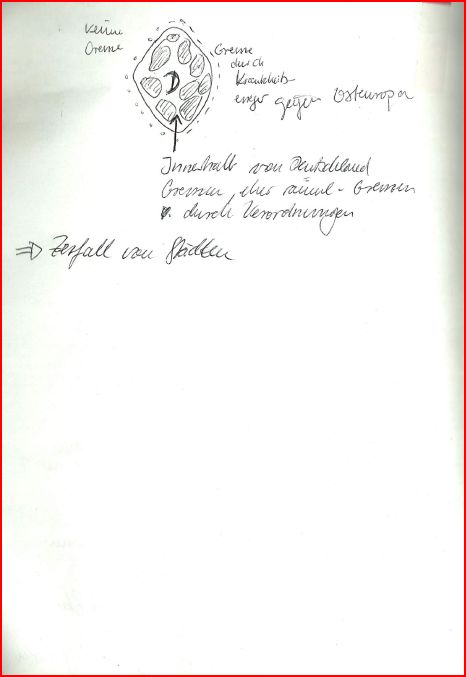 keine
Grenze
Grenze
durch
Krankheits-
erreger gegen Osteuropa
D
Innerhalb von Deutschland
Grenzen, eher räuml. Grenzen
durch Verordnungen
⇒ Zerfall von Städten